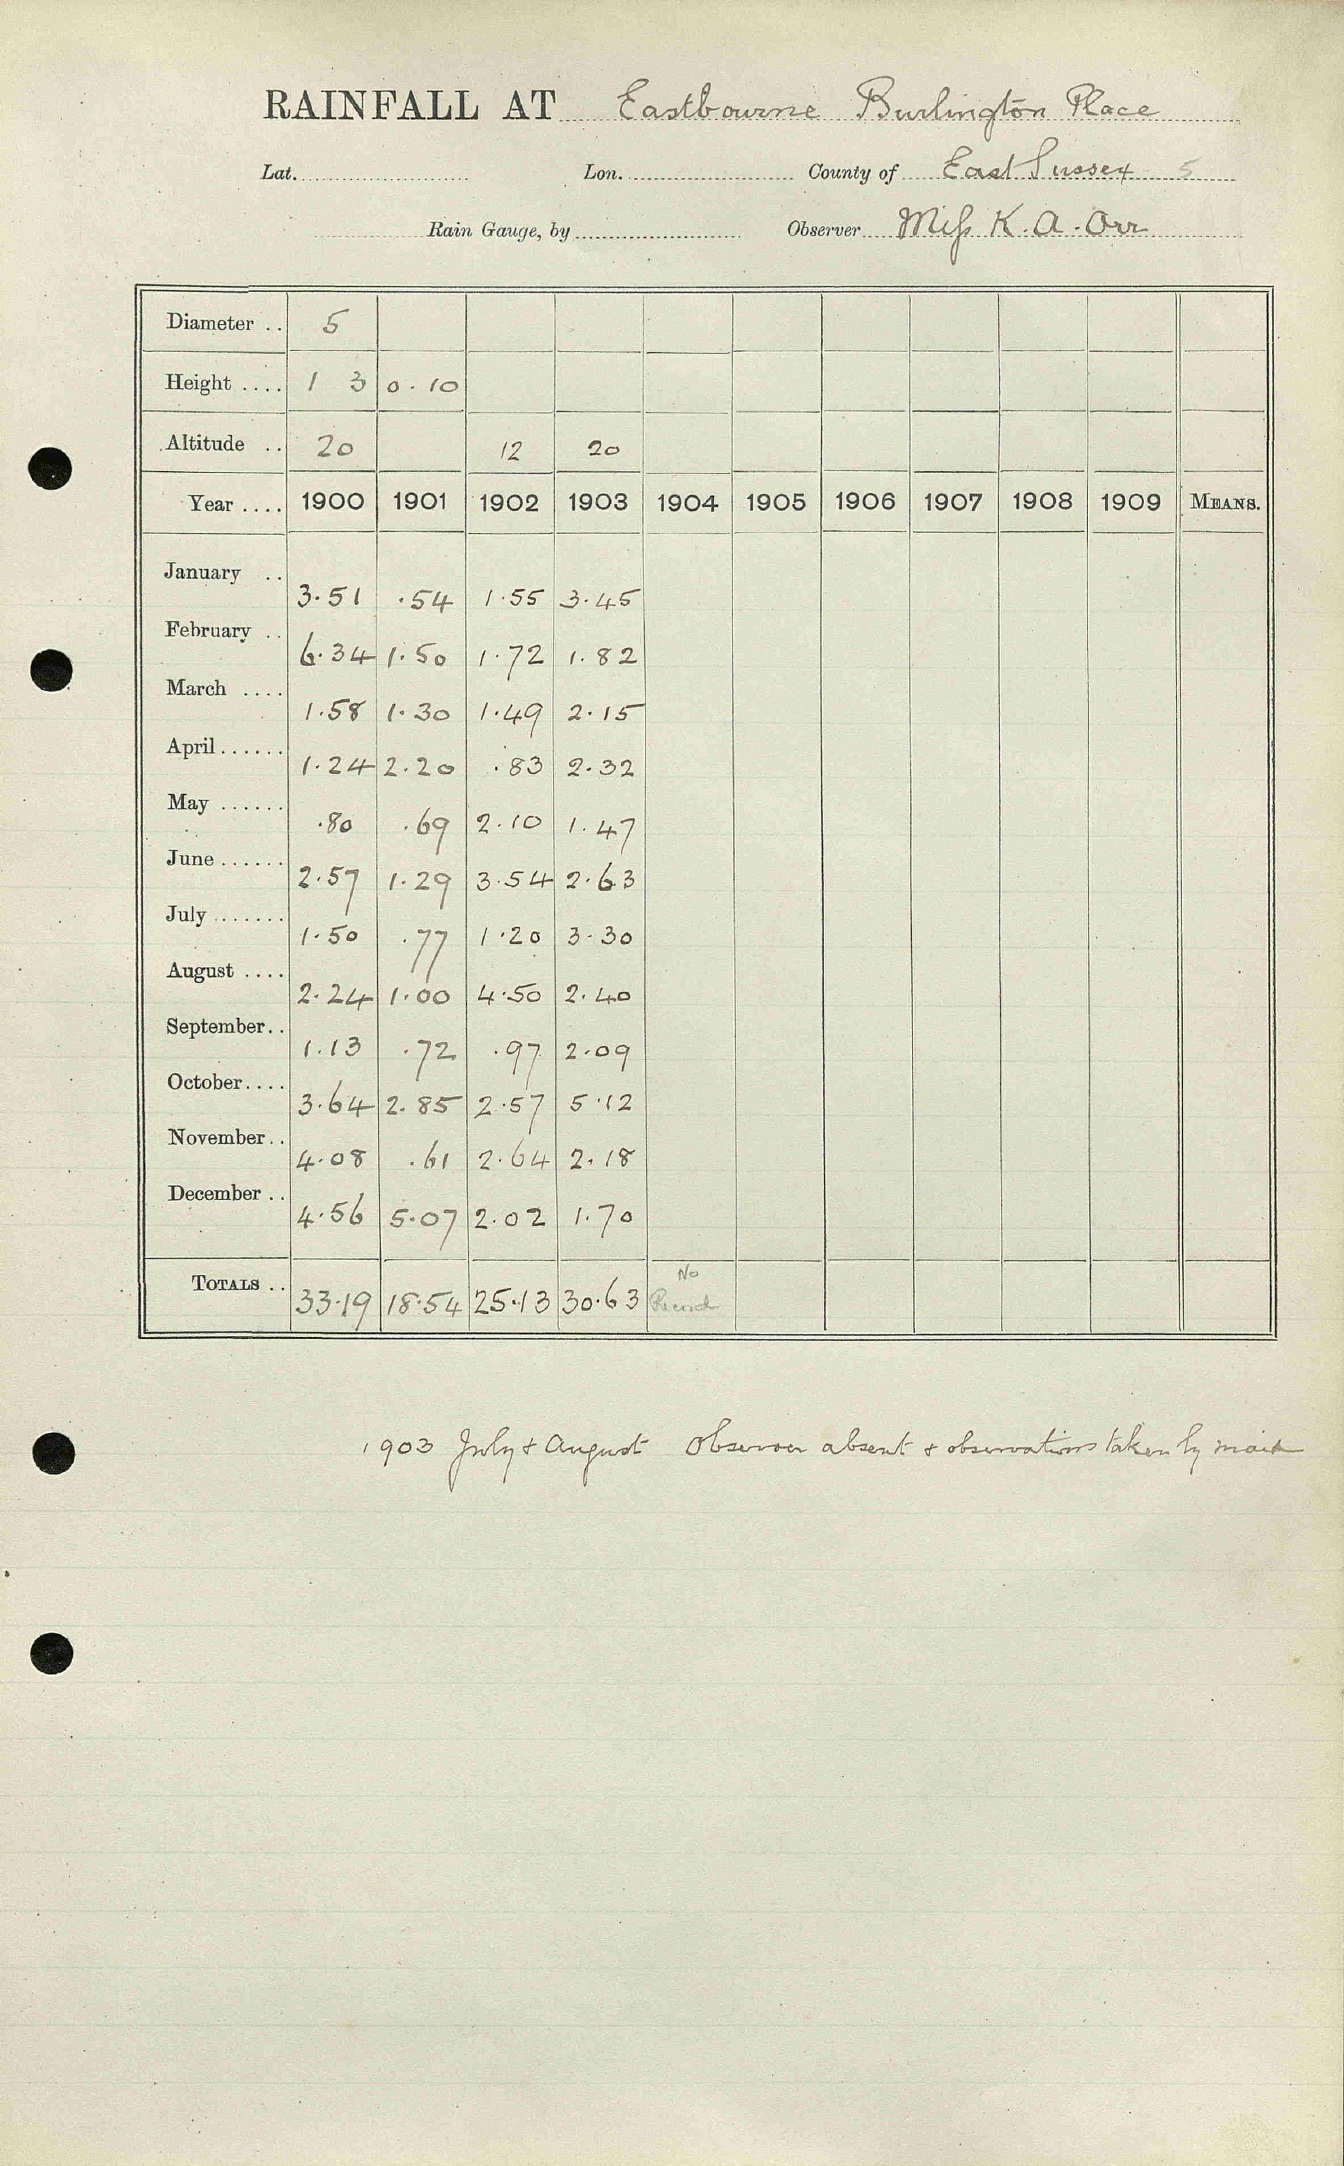 RAINFALL AT Eastbourne Burlington Place
Lat. Lon. County of East Sussex 5
Rain Gauge, by Observer Miss K. A. Orr
Diameter .. 5
Height .... 1 3 0.10
Altitude .. 20 12 20
Year .... 1900 1901 1902 1903 1904 1905 1906 1907 1908 1909 MEANS.
January .. 3.51 .54 1.55 3.45
February .. 6.34 1.50 1.72 1.82
March .... 1.58 1.30 1.49 2.15
April ...... 1.24 2.20 .83 2.32
May ...... .80 .69 2.10 1.47
June ...... 2.57 1.29 3.54 2.63
July ....... 1.50 .77 1.20 3.30
August .... 2.24 1.00 4.50 2.40
September.. 1.13 .72 .97 2.09
October.... 3.64 2.85 2.57 5.12
November.. 4.08 .61 2.64 2.18
December .. 4.56 5.07 2.02 1.70
TOTALS .. 33.19 18.54 25.13 30.63 No Record
1903 July & August Observer absent & observations taken by maid